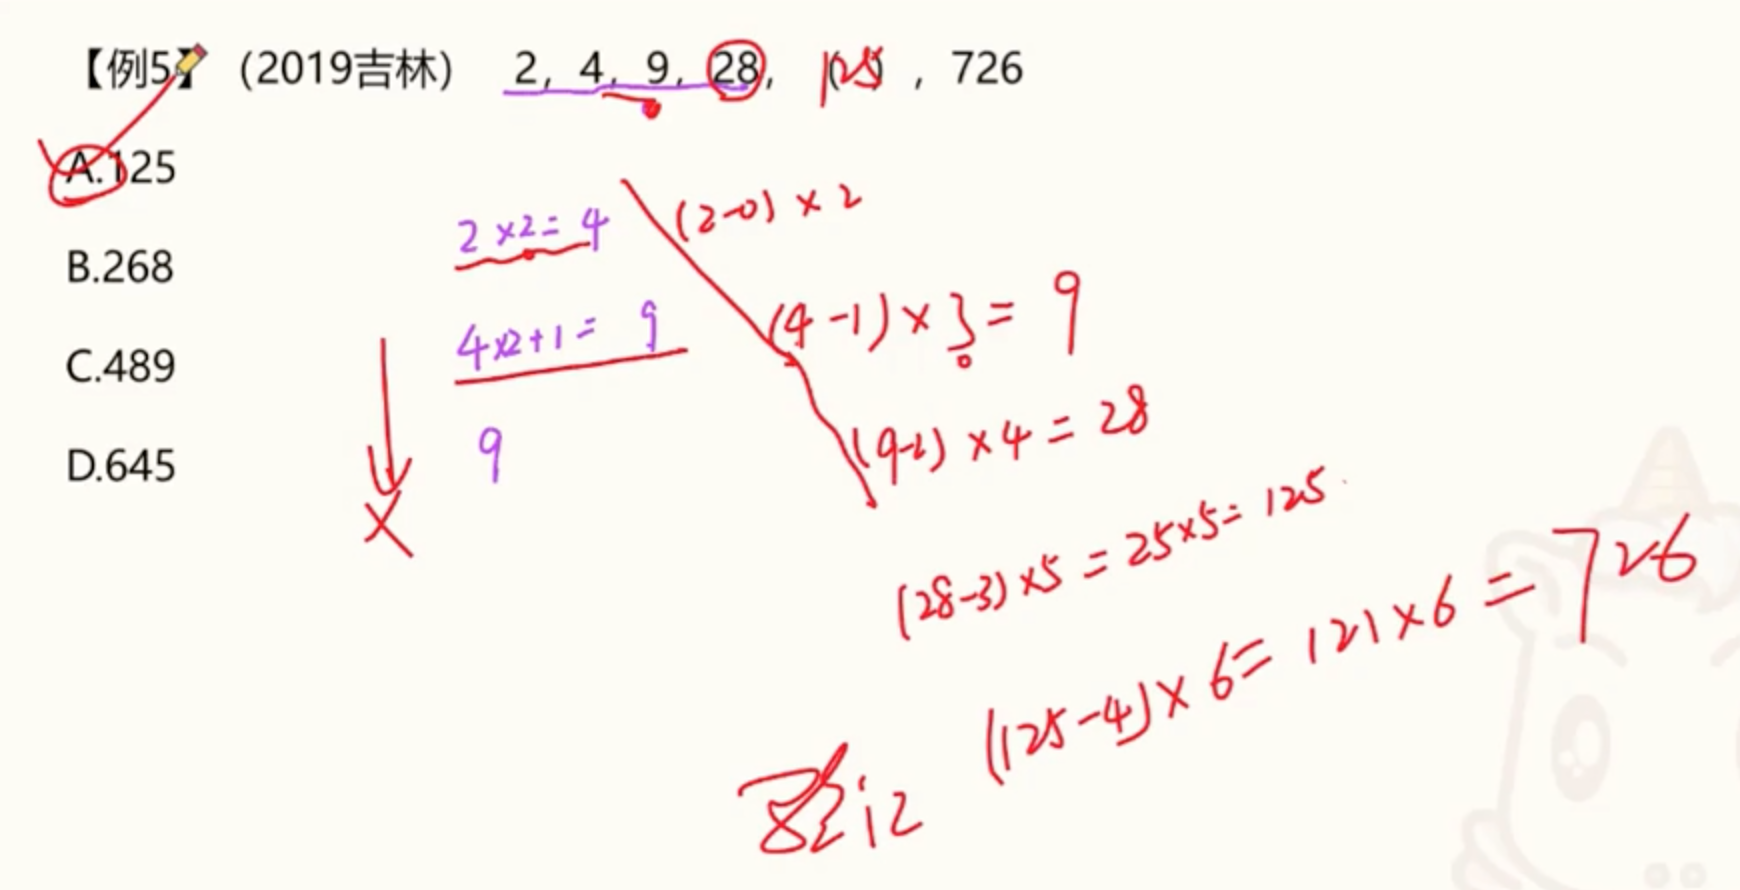 【例5】（2019吉林） 2，4，9，28，（125），726
A.125
B.268
C.489
D.645
2×2=4
(2-0)×2
4×2+1=9
(4-1)×3=9
9
(9-2)×4=28
(28-3)×5=25×5=125
(125-4)×6=121×6=726